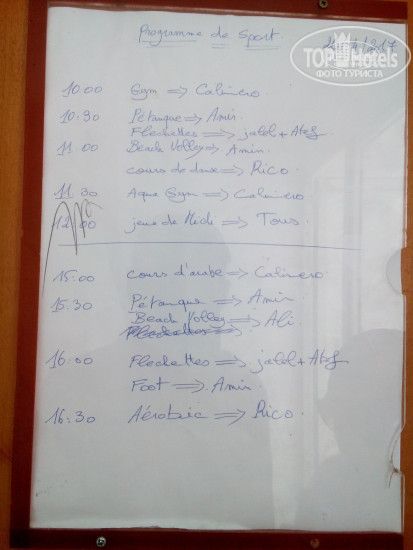 Programme de Sport
TOPHotels
ФОТО ТУРИСТА
10.00 Gym ⇒ Calinero
10.30 Pétanque ⇒ Amin
Flechettes ⇒ jalel + Atef
11.00 Beach Volley ⇒ Amin
cours de danse ⇒ Rico
11.30 Aqua Gym ⇒ Calinero
12.00 jeux de Midi ⇒ Tous.
15.00 cours d'arabe ⇒ Calinero.
15.30 Pétanque ⇒ Amin
Beach Volley ⇒ Ali
Flechettes ⇒
16.00 Flechettes ⇒ jalel + Atef
Foot ⇒ Amin.
16.30 Aérobic ⇒ Rico.